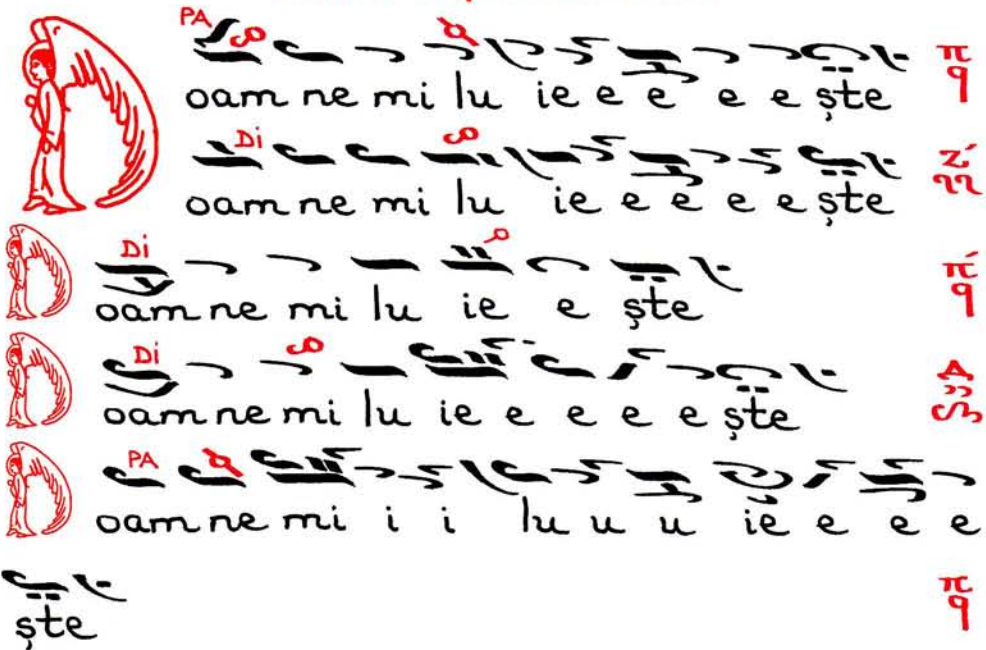 PA
Doam ne mi lu ie e e e e ște π
Di
oam ne mi lu ie e e e e ște Ζ΄
Di
Doam ne mi lu ie e ște π΄
Di
Doam ne mi lu ie e e e e ște Δ
PA
Doam ne mi i i lu u u ie e e e
ște π